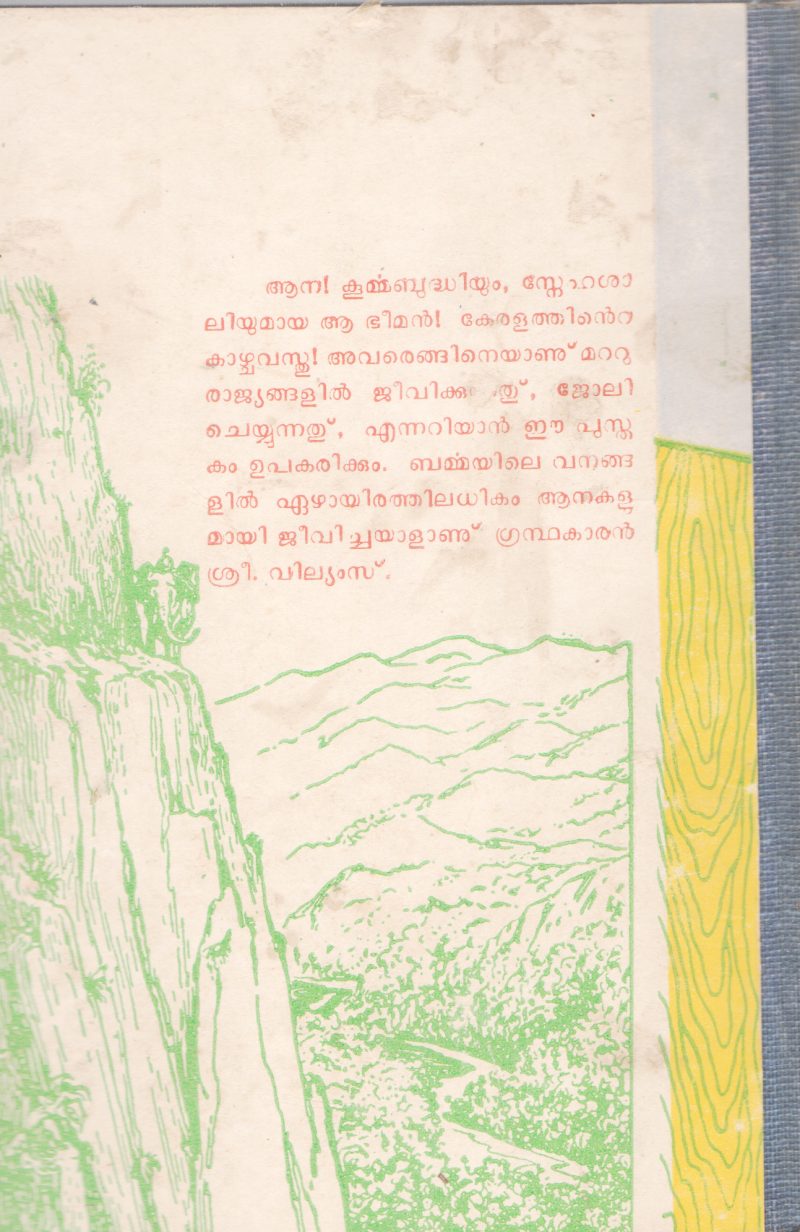 ആന! കൂർമ്മബുദ്ധിയും, സ്നേഹശാ
ലിയുമായ ആ ഭീമൻ! കേരളത്തിൻെറ
കാഴ്ചവസ്തു! അവരെങ്ങിനെയാണു് മററു
രാജ്യങ്ങളിൽ ജീവിക്കുന്നതു്, ജോലി
ചെയ്യുന്നതു്, എന്നറിയാൻ ഈ പുസ്ത
കം ഉപകരിക്കും. ബർമ്മയിലെ വനങ്ങ
ളിൽ ഏഴായിരത്തിലധികം ആനകളു
മായി ജീവിച്ചയാളാണു് ഗ്രന്ഥകാരൻ
ശ്രീ. വില്യംസ്.